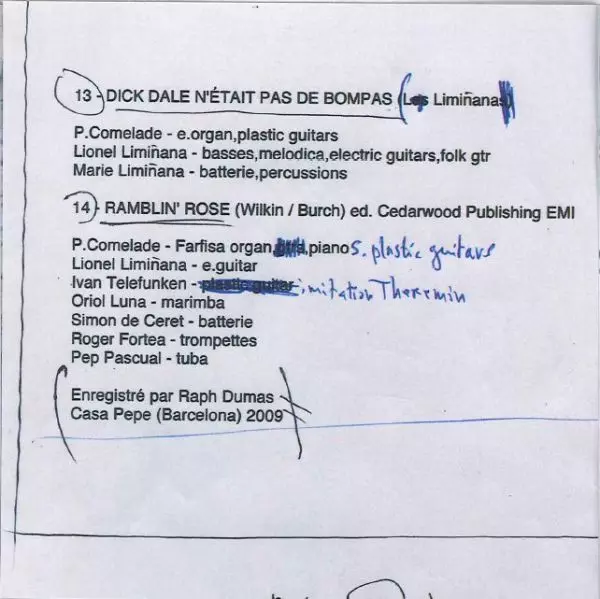 13 - DICK DALE N'ÉTAIT PAS DE BOMPAS (Les Limiñanas)
P.Comelade - e.organ,plastic guitars
Lionel Limiñana - basses,melodica,electric guitars,folk gtr
Marie Limiñana - batterie,percussions
14 - RAMBLIN' ROSE (Wilkin / Burch) ed. Cedarwood Publishing EMI
P.Comelade - Farfisa organ, ,piano s. plastic guitars
Lionel Limiñana - e.guitar
Ivan Telefunken - plastic guitar imitation Theremin
Oriol Luna - marimba
Simon de Ceret - batterie
Roger Fortea - trompettes
Pep Pascual - tuba
Enregistré par Raph Dumas
Casa Pepe (Barcelona) 2009